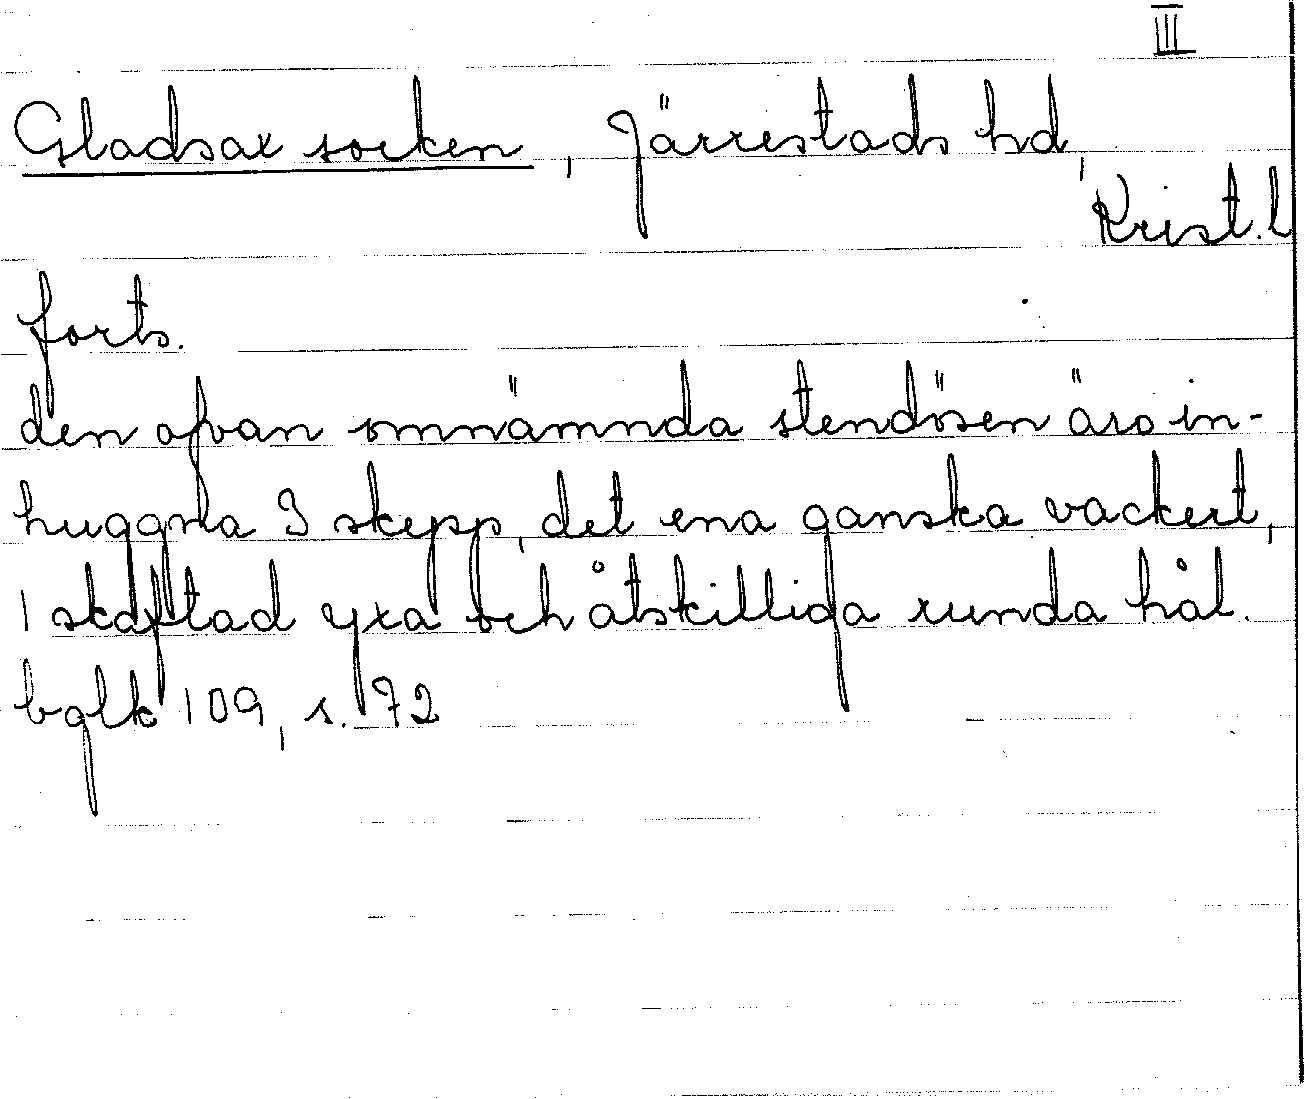 III
Gladsax socken, Järrestads hd,
Krist. l
forts.
den ofvan omnämnda stendösen äro in-
huggna 3 skepp, det ena ganska vackert,
1 skaftad yxa och åtskilliga runda hål.
bqlk 109, s. 72